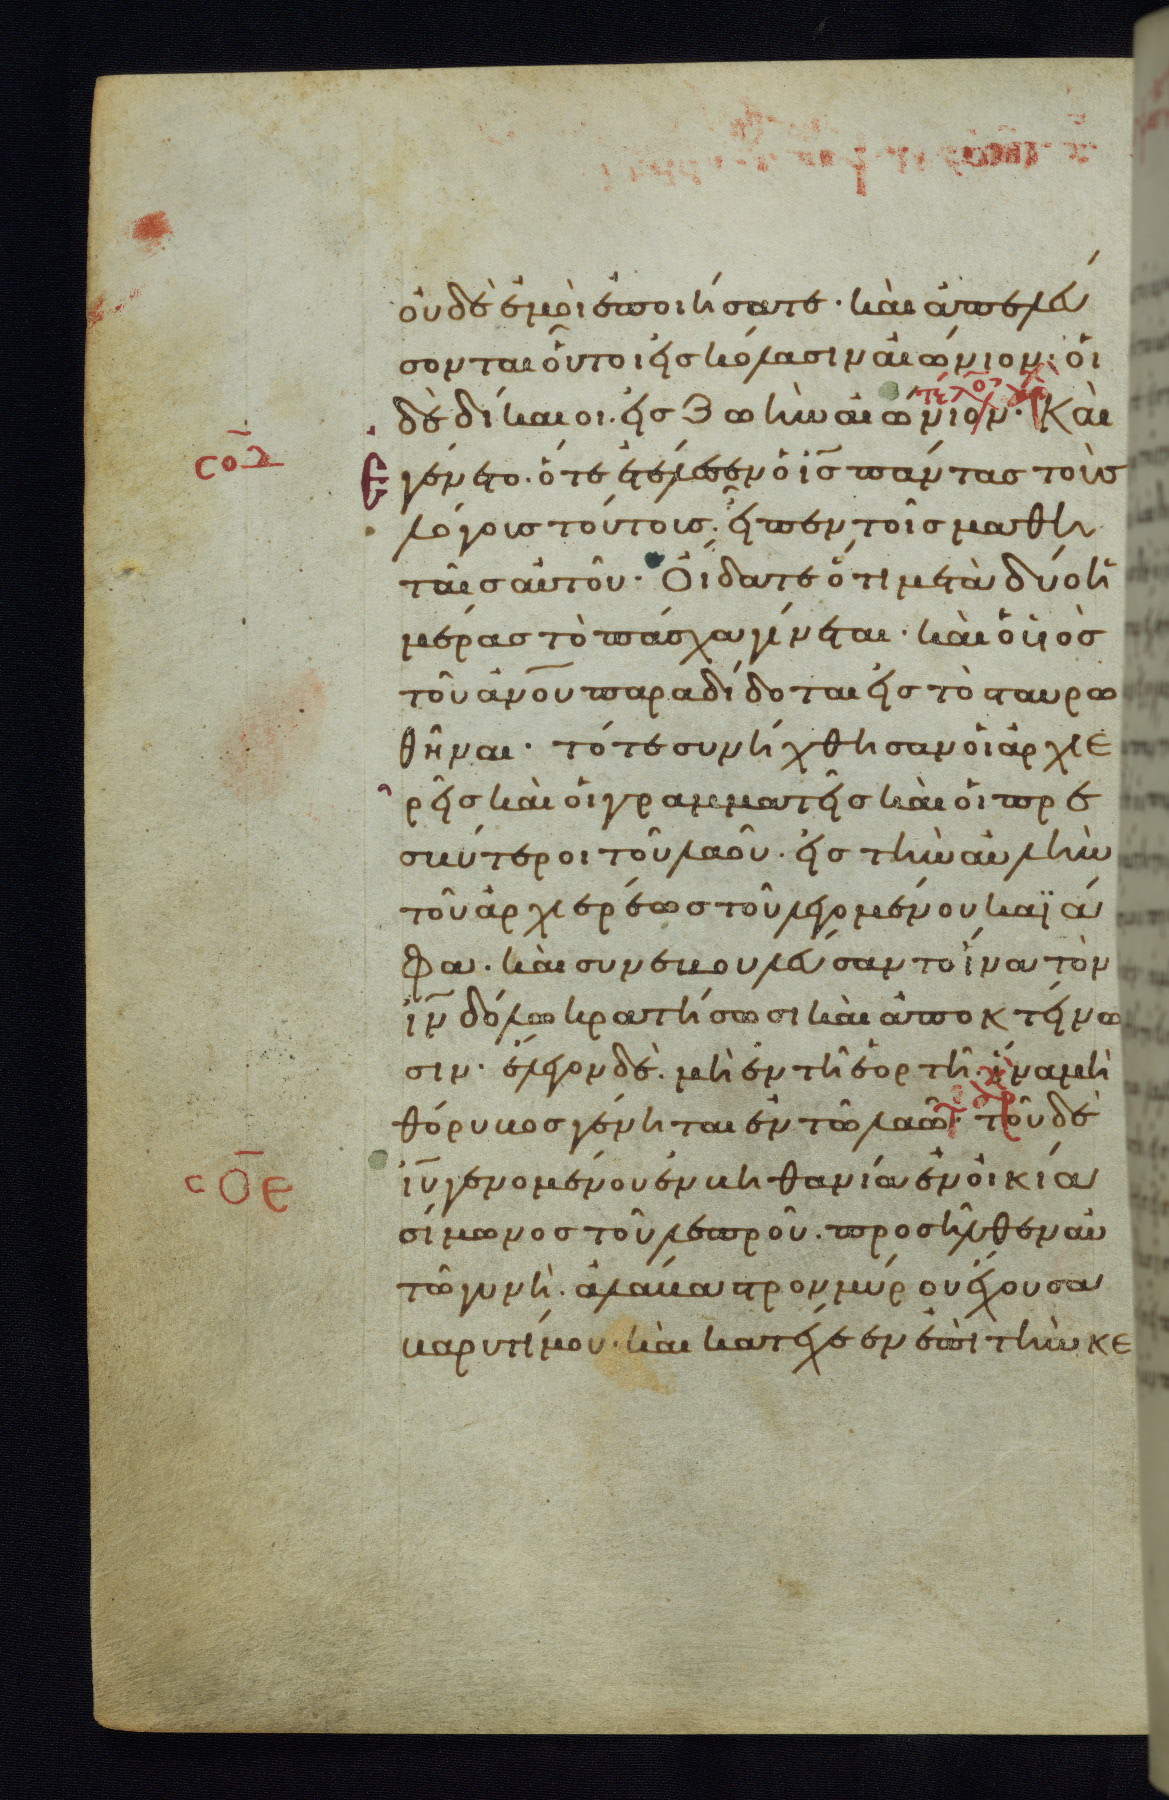 οὐδὲ ἐμοὶ ἐποιήσατε· καὶ ἀπελεύ
σονται οὗτοι εἰς κόλασιν αἰώνιον· οἱ
τέλος
δὲ δίκαιοι εἰς ζωὴν αἰώνιον· Καὶ
σοδ
Ἐγένετο· ὅτε ἐτέλεσεν ὁ ἰς πάντας τοὺς
λόγους τούτους· εἶπεν τοῖς μαθη
ταῖς αὐτοῦ· Οἴδατε ὅτι μετὰ δύο ἡ
μέρας τὸ πάσχα γίνεται· καὶ ὁ υἱὸς
τοῦ ἀνου παραδίδοται εἰς τὸ σταυρω
θῆναι· τότε συνήχθησαν οἱ ἀρχιε
ρεῖς καὶ οἱ γραμματεῖς καὶ οἱ πρε
σβύτεροι τοῦ λαοῦ· εἰς τὴν αὐλὴν
τοῦ ἀρχιερέως τοῦ λεγομένου καϊά
φα· καὶ συνεβουλεύσαντο ἵνα τὸν
ἰν δόλω κρατήσωσι καὶ ἀποκτείνω
σιν· ἔλεγον δὲ· μὴ ἐν τῆ ἑορτῆ· ἵνα μὴ
θόρυβος γένηται ἐν τῶ λαῶ· τοῦ δὲ
σοε
ἰυ γενομένου ἐν βηθανία ἐν οἰκία
σίμωνος τοῦ λεπροῦ· προσῆλθεν αὐ
τῶ γυνὴ· ἀλάβαστρον μύρου ἔχουσα
βαρυτίμου· καὶ κατέχεεν ἐπὶ τὴν κε